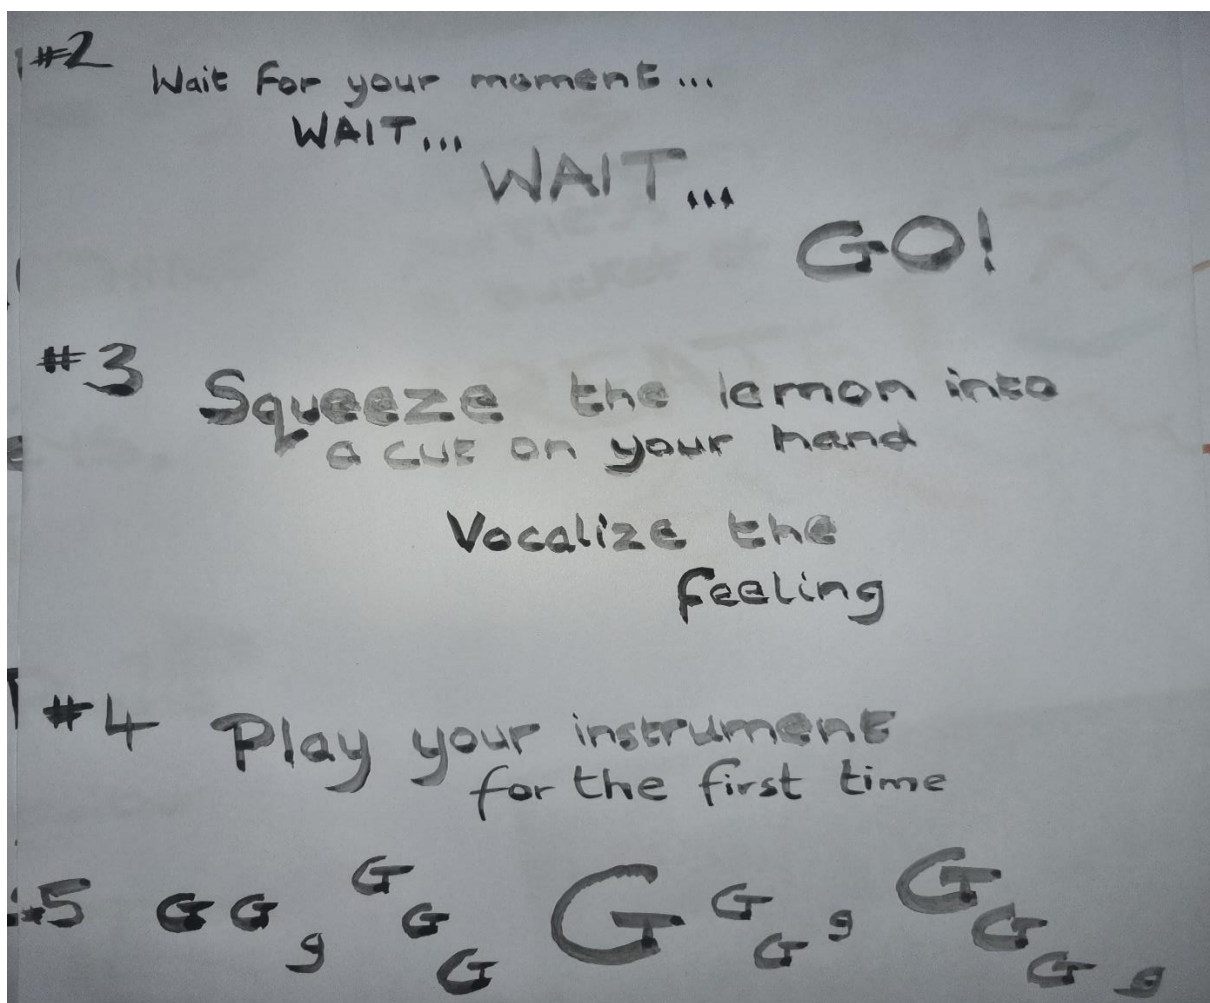 #2
Wait for your moment...
WAIT...
WAIT...
GO!
#3 Squeeze the lemon into
a cut on your hand
Vocalize the
feeling
#4 Play your instrument
for the first time
5 G G g G G G G G G g G G G g